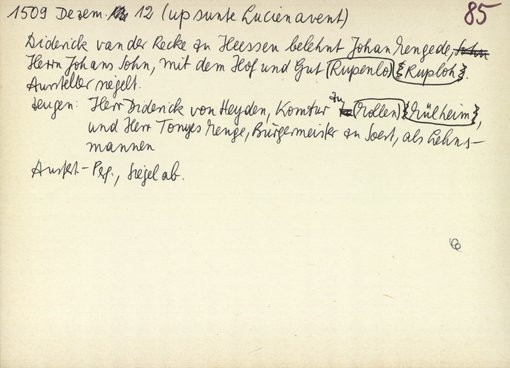 1509 Dezem. 12 (up sunte Lucien avent) 85
Diderick van der Recke zu Heessen belehnt Johan Menge de,
Herrn Johans Sohn, mit dem Hof und Gut (Rupenlo) {Ruploh}.
Aussteller siegelt.
Zeugen: Herr Diderick von Heyden, Komtur zu (Mollen) {Mülheim},
und Herr Tonyes Menge, Bürgermeister zu Soest, als Lehns-
mannen
Ausf.-Perg., Siegel ab.